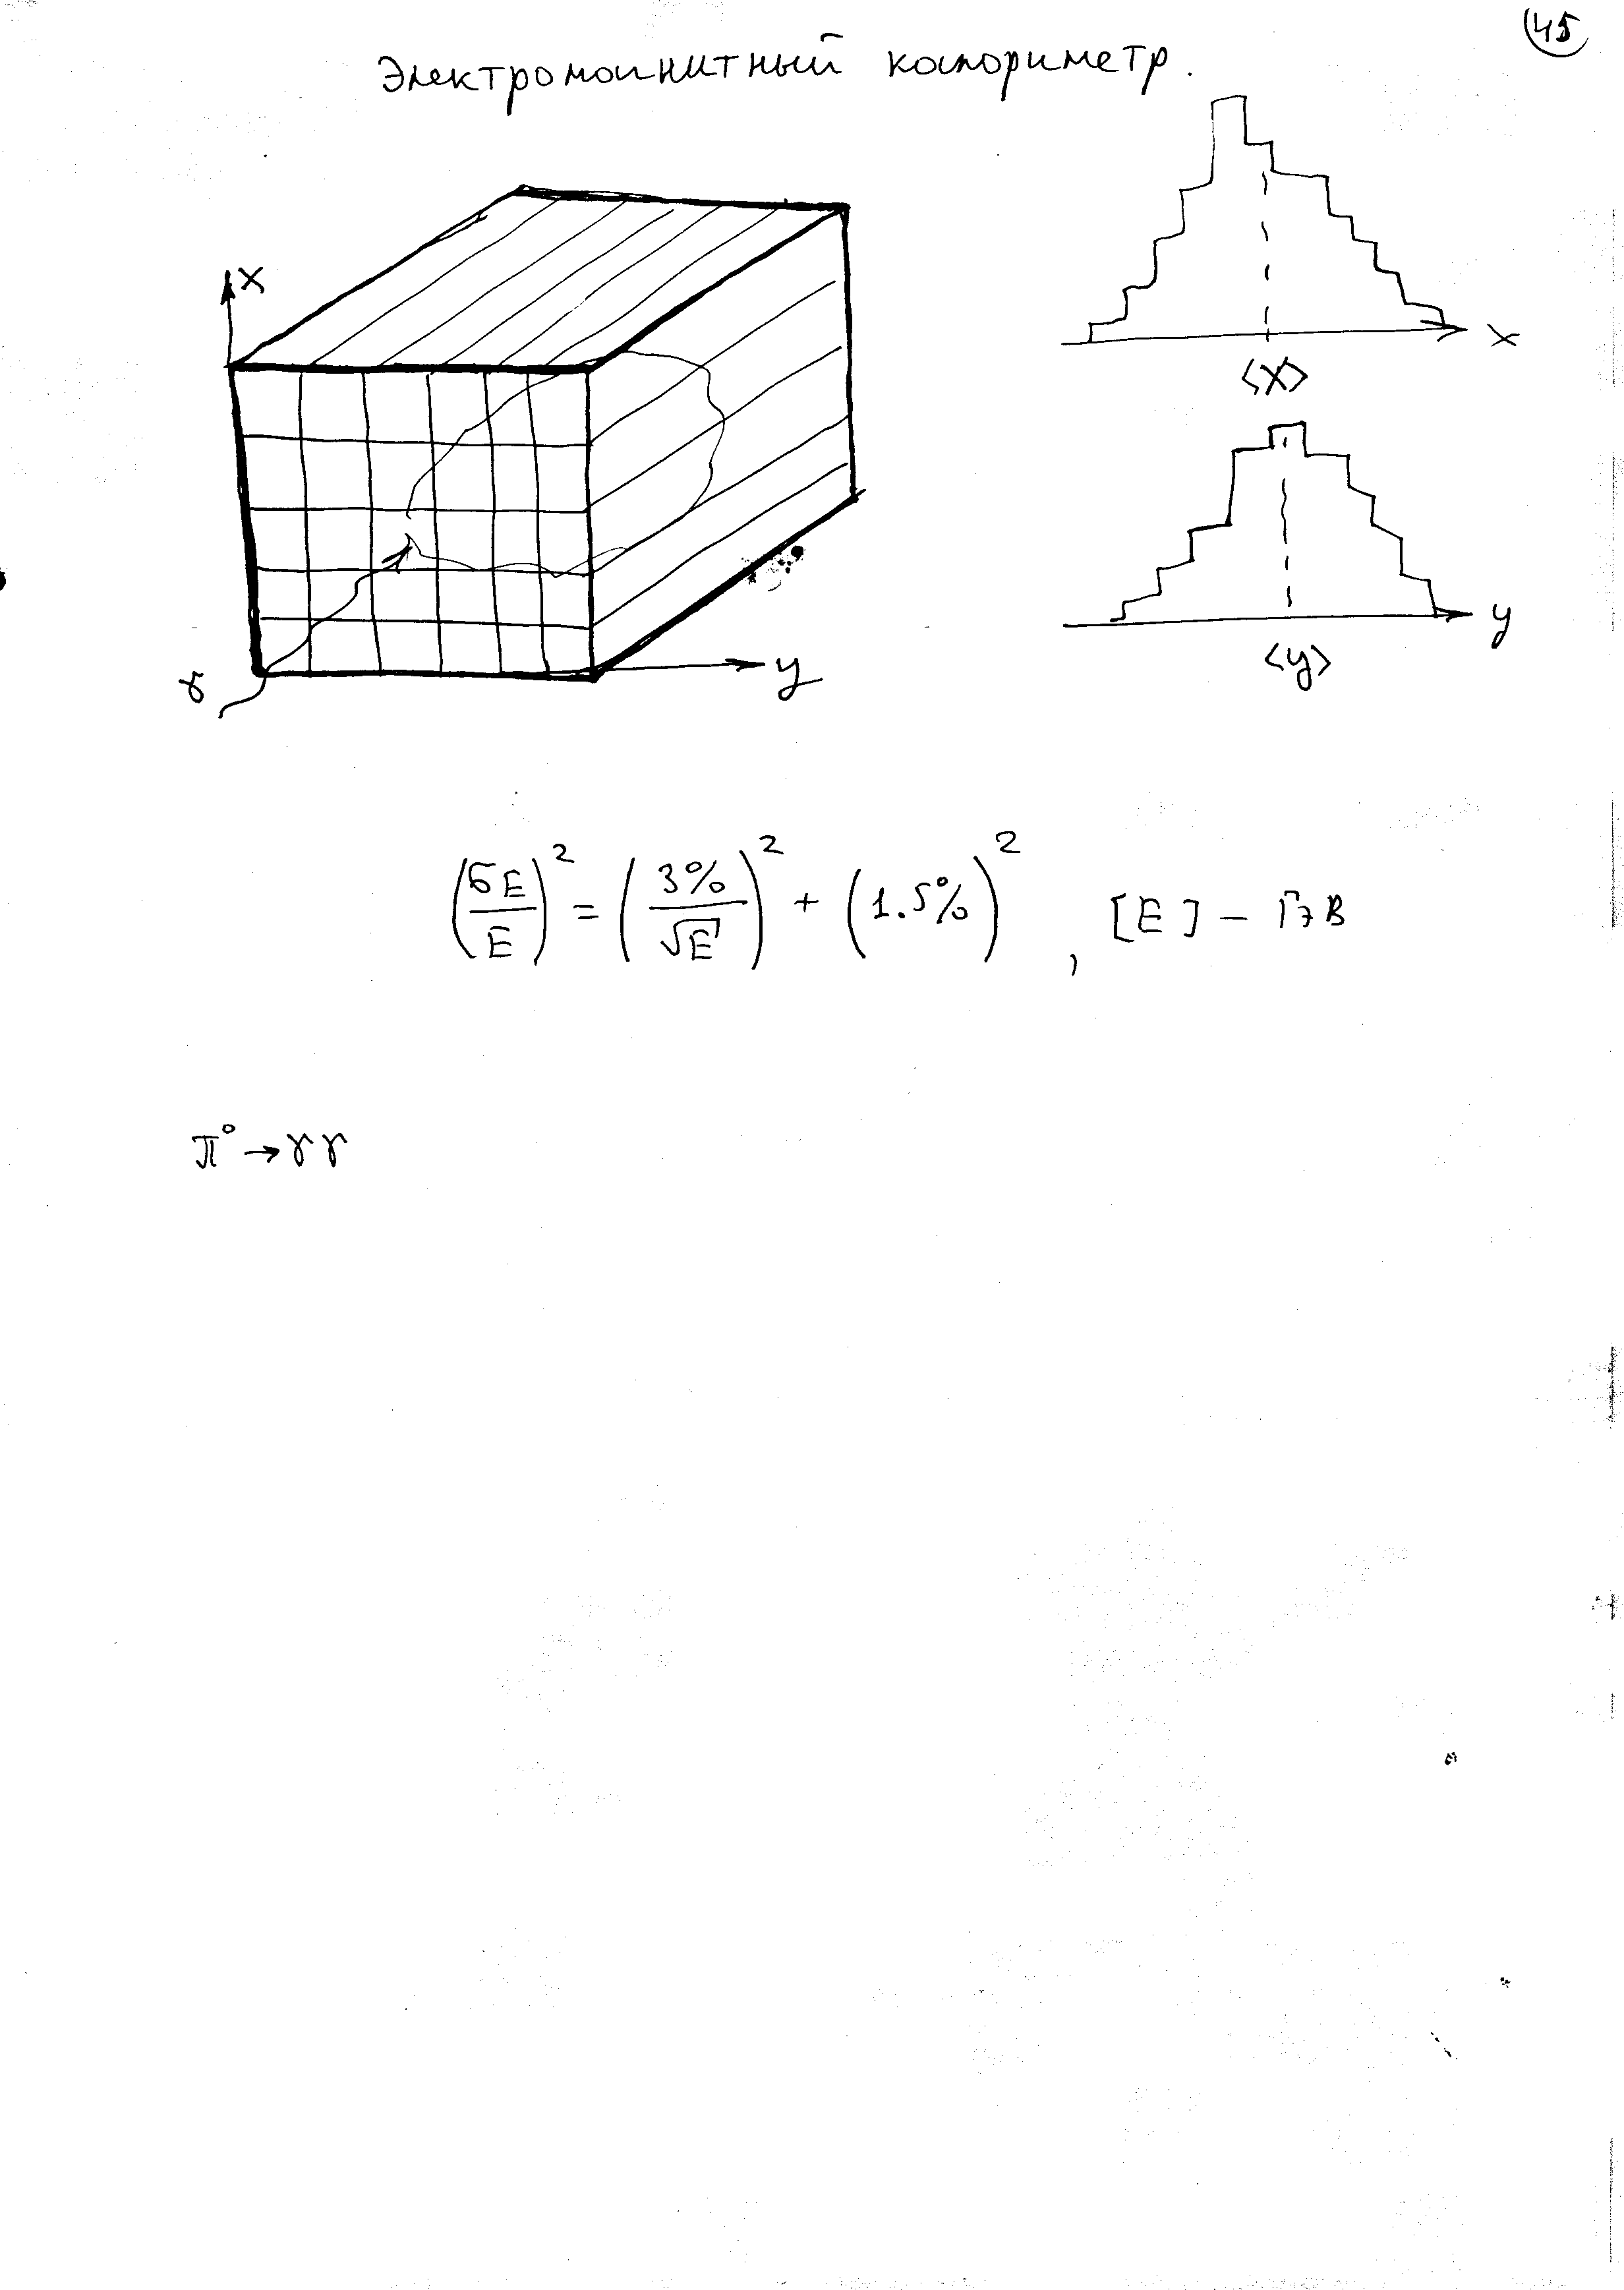 45
Электромагнитный калориметр.
x
x
⟨x⟩
y
⟨y⟩
γ
y
(σE/E)² = (3%/√E)² + (1.5%)², [E] – ГэВ
π⁰ → γγ